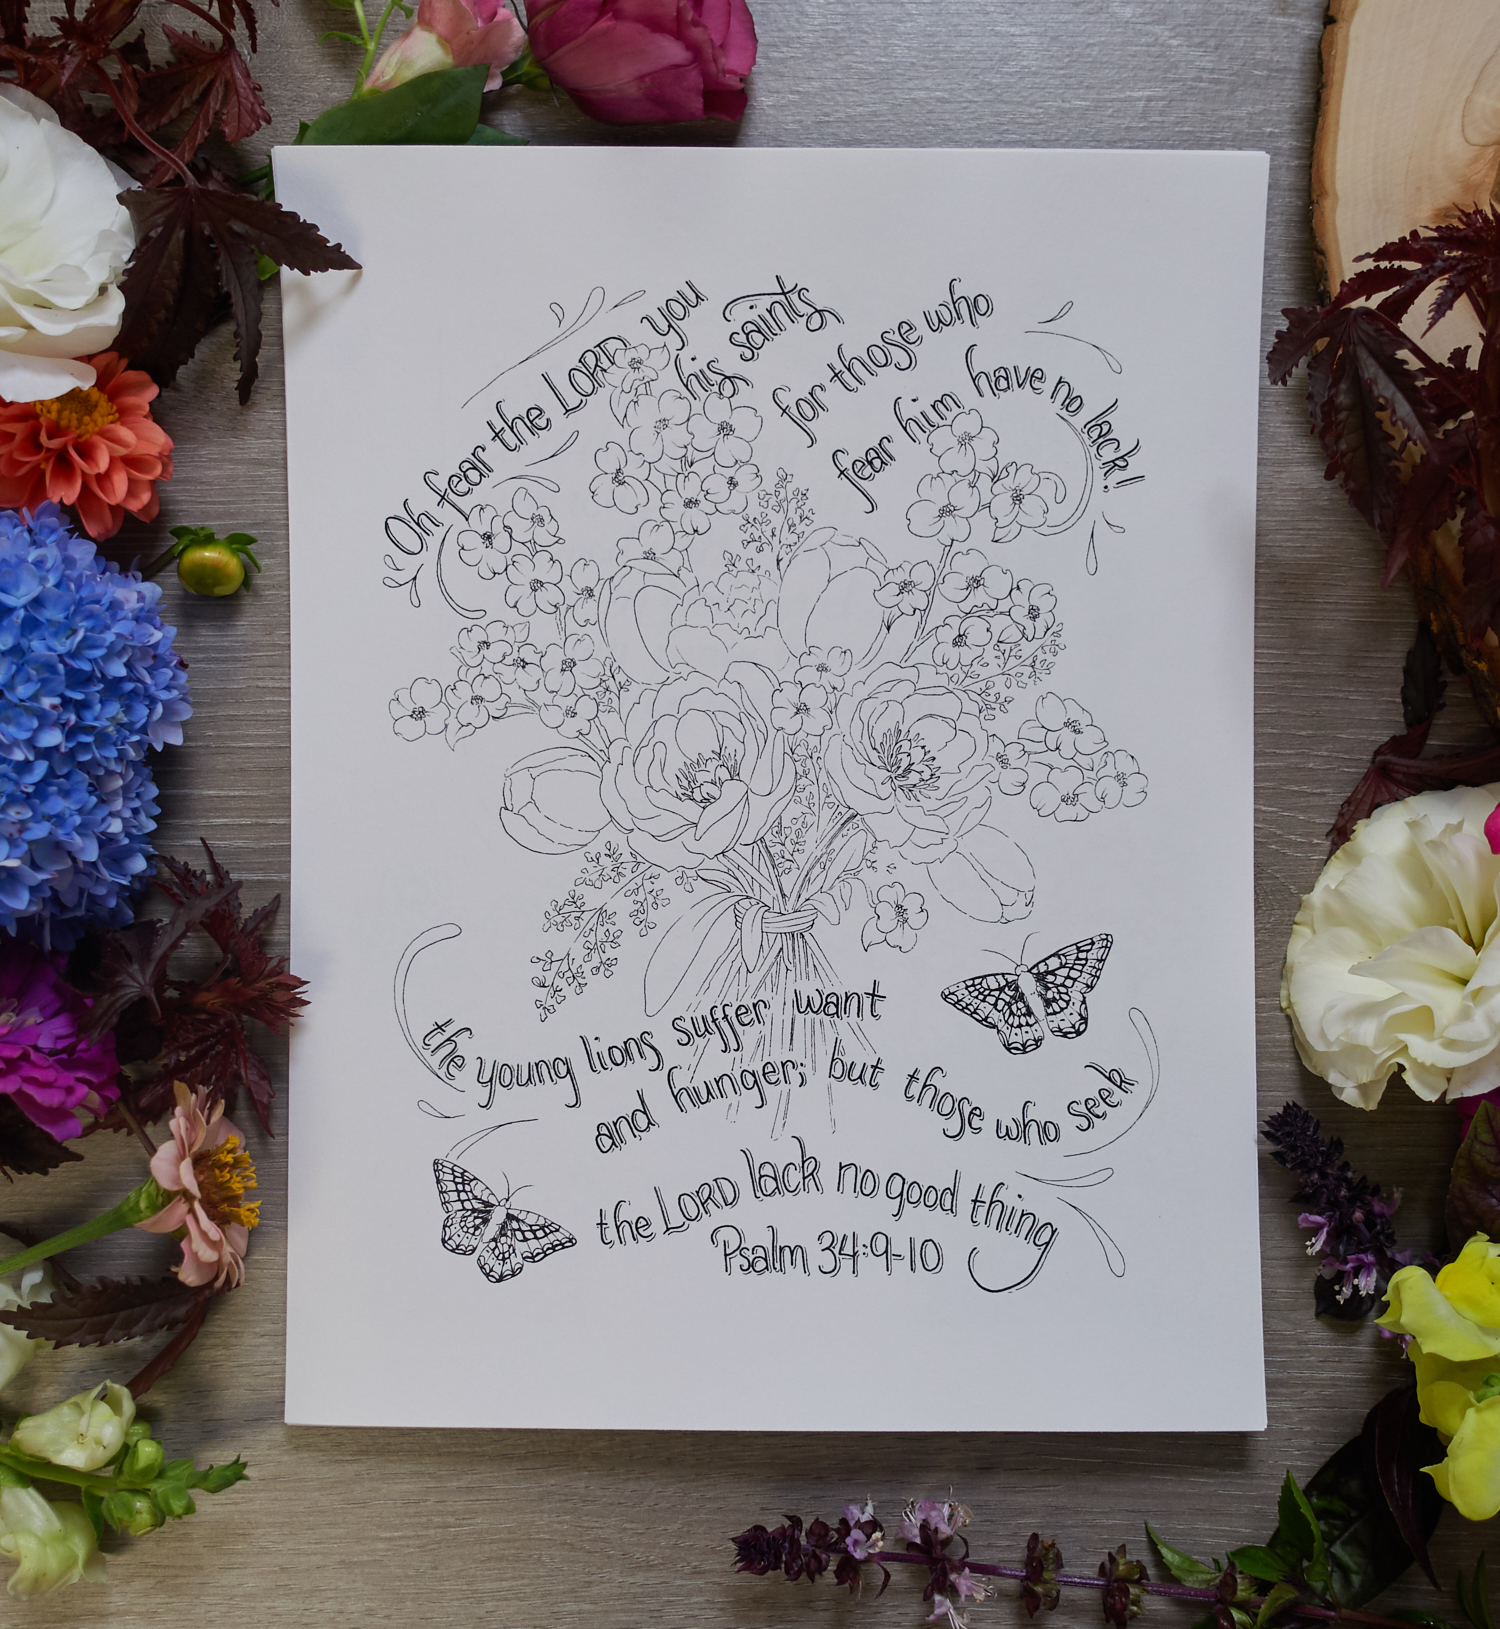 Oh fear the LORD you
his saints,
for those who
fear him have no lack!
the young lions suffer want
and hunger; but those who seek
the LORD lack no good thing
Psalm 34:9-10